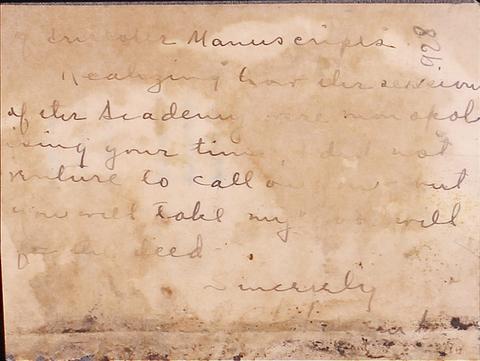 Manuscripts.
Realizing how the sessions
of the Academy were monopol
izing your time I did not
venture to call on you but
you will take my will
for the deed
Sincerely
928